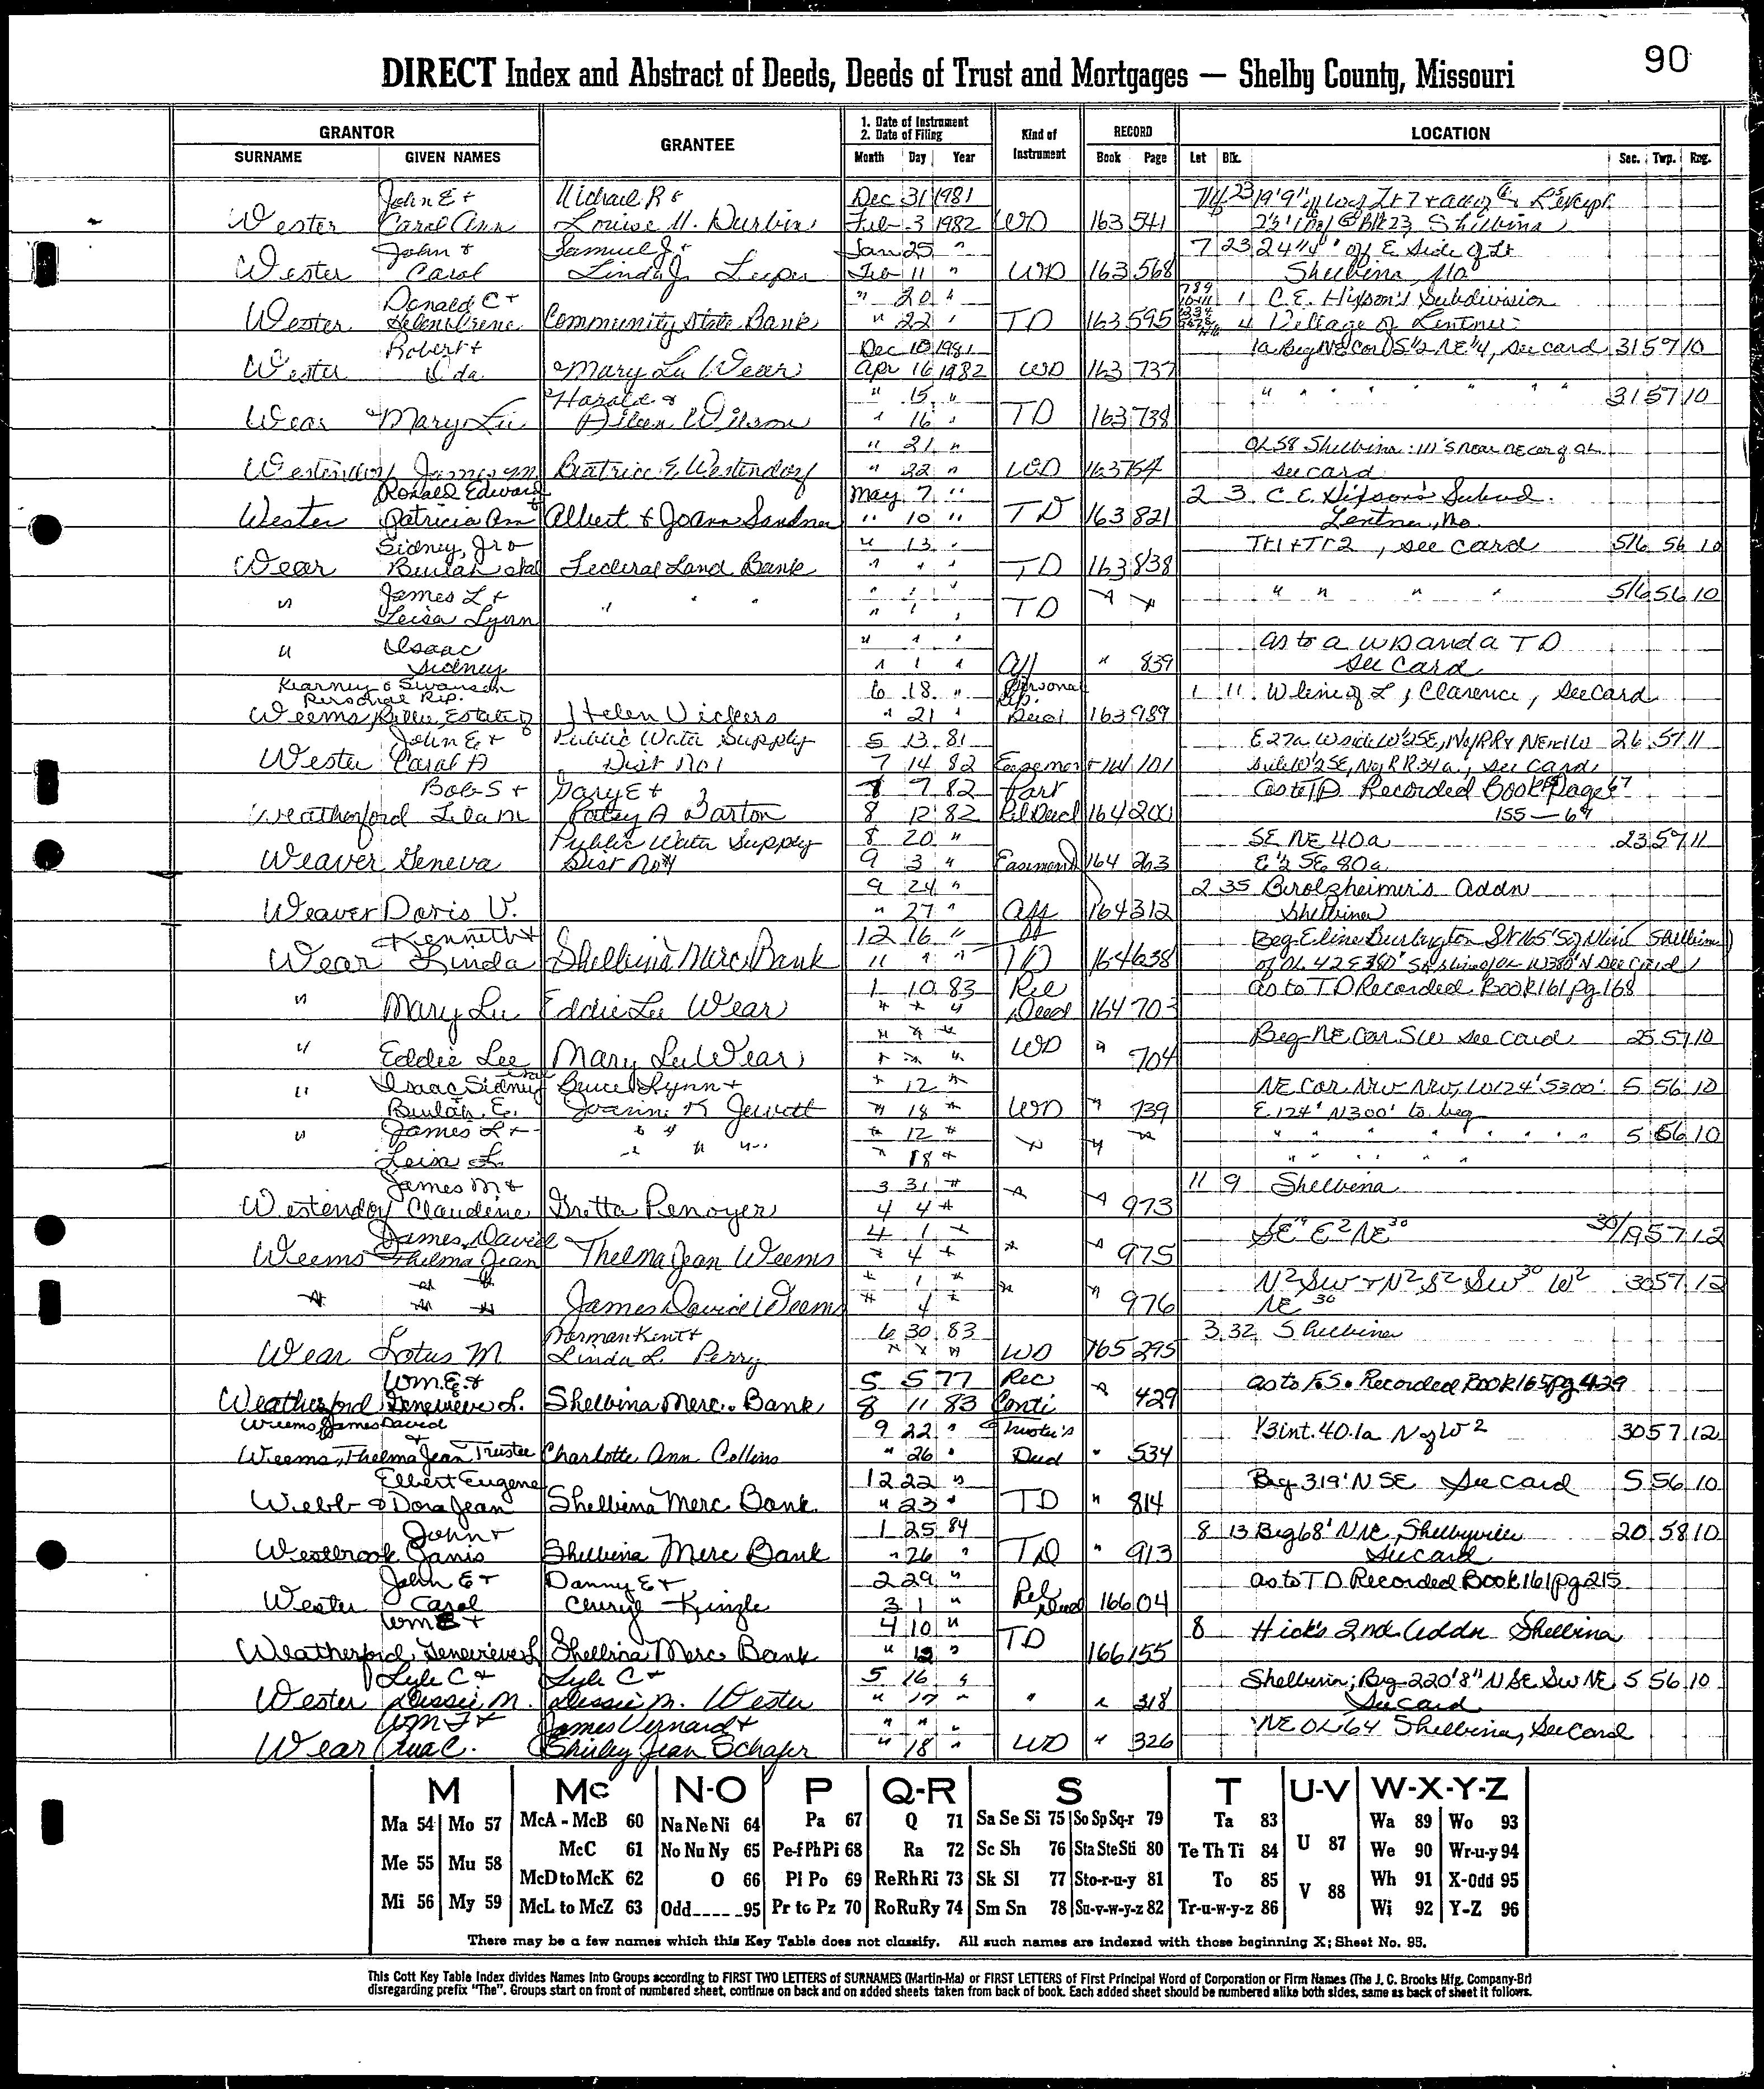 90
DIRECT Index and Abstract of Deeds, Deeds of Trust and Mortgages — Shelby County, Missouri
GRANTOR GRANTEE 1. Date of Instrument 2. Date of Filing Kind of Instrument RECORD LOCATION
SURNAME GIVEN NAMES Month Day Year Book Page Lot Blk. Sec. Twp. Rng.
John E + Michael R & Dec 31 1981
Wester Carol Ann Louise M. Durbin Feb 3 1982 WD 163 541 Shelbina
John + Samuel J + Jan 25 " 7 23 24'4" off E Side of Lt
Wester Carol Linda J. Leeper Feb 11 " WD 163 568 Shelbina, Mo
Donald C + " 20 " 1 C.E. Hixson's Subdivision
Wester Helen Irene Community State Bank " 22 " TD 163 595 4 Village of Lentner
Robert + Dec 10 1981 1a Beg NE Cor S 1/2 NE 1/4, see card 31 57 10
Wester Mary Lu Wear Apr 16 1982 WD 163 737
Harold & " 15 " " " " " " " " 31 57 10
Wear Mary Lu Wilson " 16 " TD 163 738
" 21 " OL 58 Shelbina: 111' S near NE cor of OL
Westendorf James M Beatrice E Westendorf " 22 " WD 163 764 see card
Ronald Edward & May 7 " 2 3 C.E. Hixson's Subd.
Wester Patricia Ann Albert & Joann Sandner " 10 " TD 163 821 Lentner, Mo
Sidney, Jr & " 13 " Tr 1 + Tr 2, see card 5/6 56 10
Wear Beulah etal Federal Land Bank " " " TD 163 838
James L + " " " " " " " 5/6 56 10
" Leisa Lynn " " " TD " "
Isaac " " " as to a WD and a TD
" Sidney " " " Aff " 839 see card
Kearney & Swanson
Personal Rep. 6 18 " Personal Rep. 1 11 W line of L, Clarence, see card
Weems, Billie, Estate of Helen Vickers " 21 " Deed 163 989
John E + Public Water Supply 5 13 81 26 57 11
Wester Carol A Dist No 1 7 14 82 Easement 164 101 see card
Bob S + Gary E + 7 82 Part as to TD Recorded Book Page
Weatherford Lila M Patsy A Barton 8 12 82 Rel Deed 164 200 155—69
Public Water Supply 8 20 " SE NE 40a 23 57 11
Weaver Geneva Dist No 9 3 " Easement 164 263 E 1/2 SE 80a
9 24 " 2 35 Berolzheimer's Addn
Weaver Doris V. " 27 " Aff 164 312 Shelbina
Kenneth + 12 16 " Beg E line Burlington St 165' S of N line (Shelbina)
Wear Linda Shelbina Merc. Bank " " " TD 164 638 see card
1 10 83 Rel as to TD Recorded Book 161 pg 168
" Mary Lu Eddie Lee Wear " " " Deed 164 703
" " " Beg NE Cor. SW see card 25 57 10
" Eddie Lee Mary Lu Wear " " " WD " 704
Isaac Sidney etal Bruce Lynn + " 12 " NE Cor NW NW, W 124' S 300' 5 56 10
" Beulah E. Joanne K Jewett " 18 " WD " 739 E 124' N 300' to beg
" James L + " " " 12 " " " " " " " " " 5 56 10
Leisa L. " " " " 18 " " " " " " "
James M + 3 31 " 11 9 Shelbina
Westendorf Claudine Gretta Penoyer 4 4 " " " 973
James David 4 1 " 30/19 57 12
Weems Thelma Jean Thelma Jean Weems " 4 " " " 975
" " " 1 " N2 SW + N2 S2 SW30 W2 30 57 12
" " " James David Weems " 4 " " " 976 NE 30
Norman Kent + 6 30 83 3 32 Shelbina
Wear Lotus M Linda L. Perry " " " WD 165 295
Wm. E. + 5 5 77 Rec as to F.S. Recorded Book 165 pg 429
Weatherford Genevieve L. Shelbina Merc. Bank 8 11 83 Conti " 429
Weems, James David & 9 22 " Trustee's 1/3 int. 40.1a N of W2 30 57 12
Weems, Thelma Jean Trustee Charlotte Ann Collins " 26 " Deed " 534
Elbert Eugene 12 22 " Beg 319' N SE See card 5 56 10
Webb & Dora Jean Shelbina Merc Bank. " 23 " TD " 814
John + 1 25 84 8 13 Beg 68' N NE, Shelbyville 20 58 10
Westbrook Janis Shelbina Merc Bank " 26 " TD " 913 See card
John E + Danny E + 2 29 " as to TD Recorded Book 161 pg 215
Wester Carol Cheryl Kingle 3 1 " Rel Deed 166 04
Wm E + 4 10 " 8 Hick's 2nd Addn Shelbina
Weatherford, Genevieve L Shelbina Merc Bank " 12 " TD 166 155
Lyle C + Lyle C + 5 16 " Shelbina; Beg 220'8" N SE SW NE 5 56 10
Wester Dessie M. Dessie M. Wester " 17 " " " 318 See card
Wm F + James Vernard + " " " NE OL 64 Shelbina, See Card
Wear Ava C. Shirley Jean Schafer " 18 " WD " 326
M Mc N-O P Q-R S T U-V W-X-Y-Z
Ma 54 Mo 57 McA - McB 60 Na Ne Ni 64 Pa 67 Q 71 Sa Se Si 75 So Sp Sq-r 79 Ta 83 U 87 Wa 89 Wo 93
McC 61 No Nu Ny 65 Pe-f Ph Pi 68 Ra 72 Sc Sh 76 Sta Ste Sti 80 Te Th Ti 84 We 90 Wr-u-y 94
Me 55 Mu 58 McD to McK 62 O 66 Pl Po 69 Re Rh Ri 73 Sk Sl 77 Sto-r-u-y 81 To 85 V 88 Wh 91 X-Odd 95
Mi 56 My 59 McL to McZ 63 Odd____95 Pr to Pz 70 Ro Ru Ry 74 Sm Sn 78 Su-v-w-y-z 82 Tr-u-w-y-z 86 Wi 92 Y-Z 96
There may be a few names which this Key Table does not classify. All such names are indexed with those beginning X; Sheet No. 95.
This Cott Key Table Index divides Names into Groups according to FIRST TWO LETTERS of SURNAMES (Martin-Ma) or FIRST LETTERS of First Principal Word of Corporation or Firm Names (The J. C. Brooks Mfg. Company-Br)
disregarding prefix "The". Groups start on front of numbered sheet, continue on back and on added sheets taken from back of book. Each added sheet should be numbered alike both sides, same as back of sheet it follows.